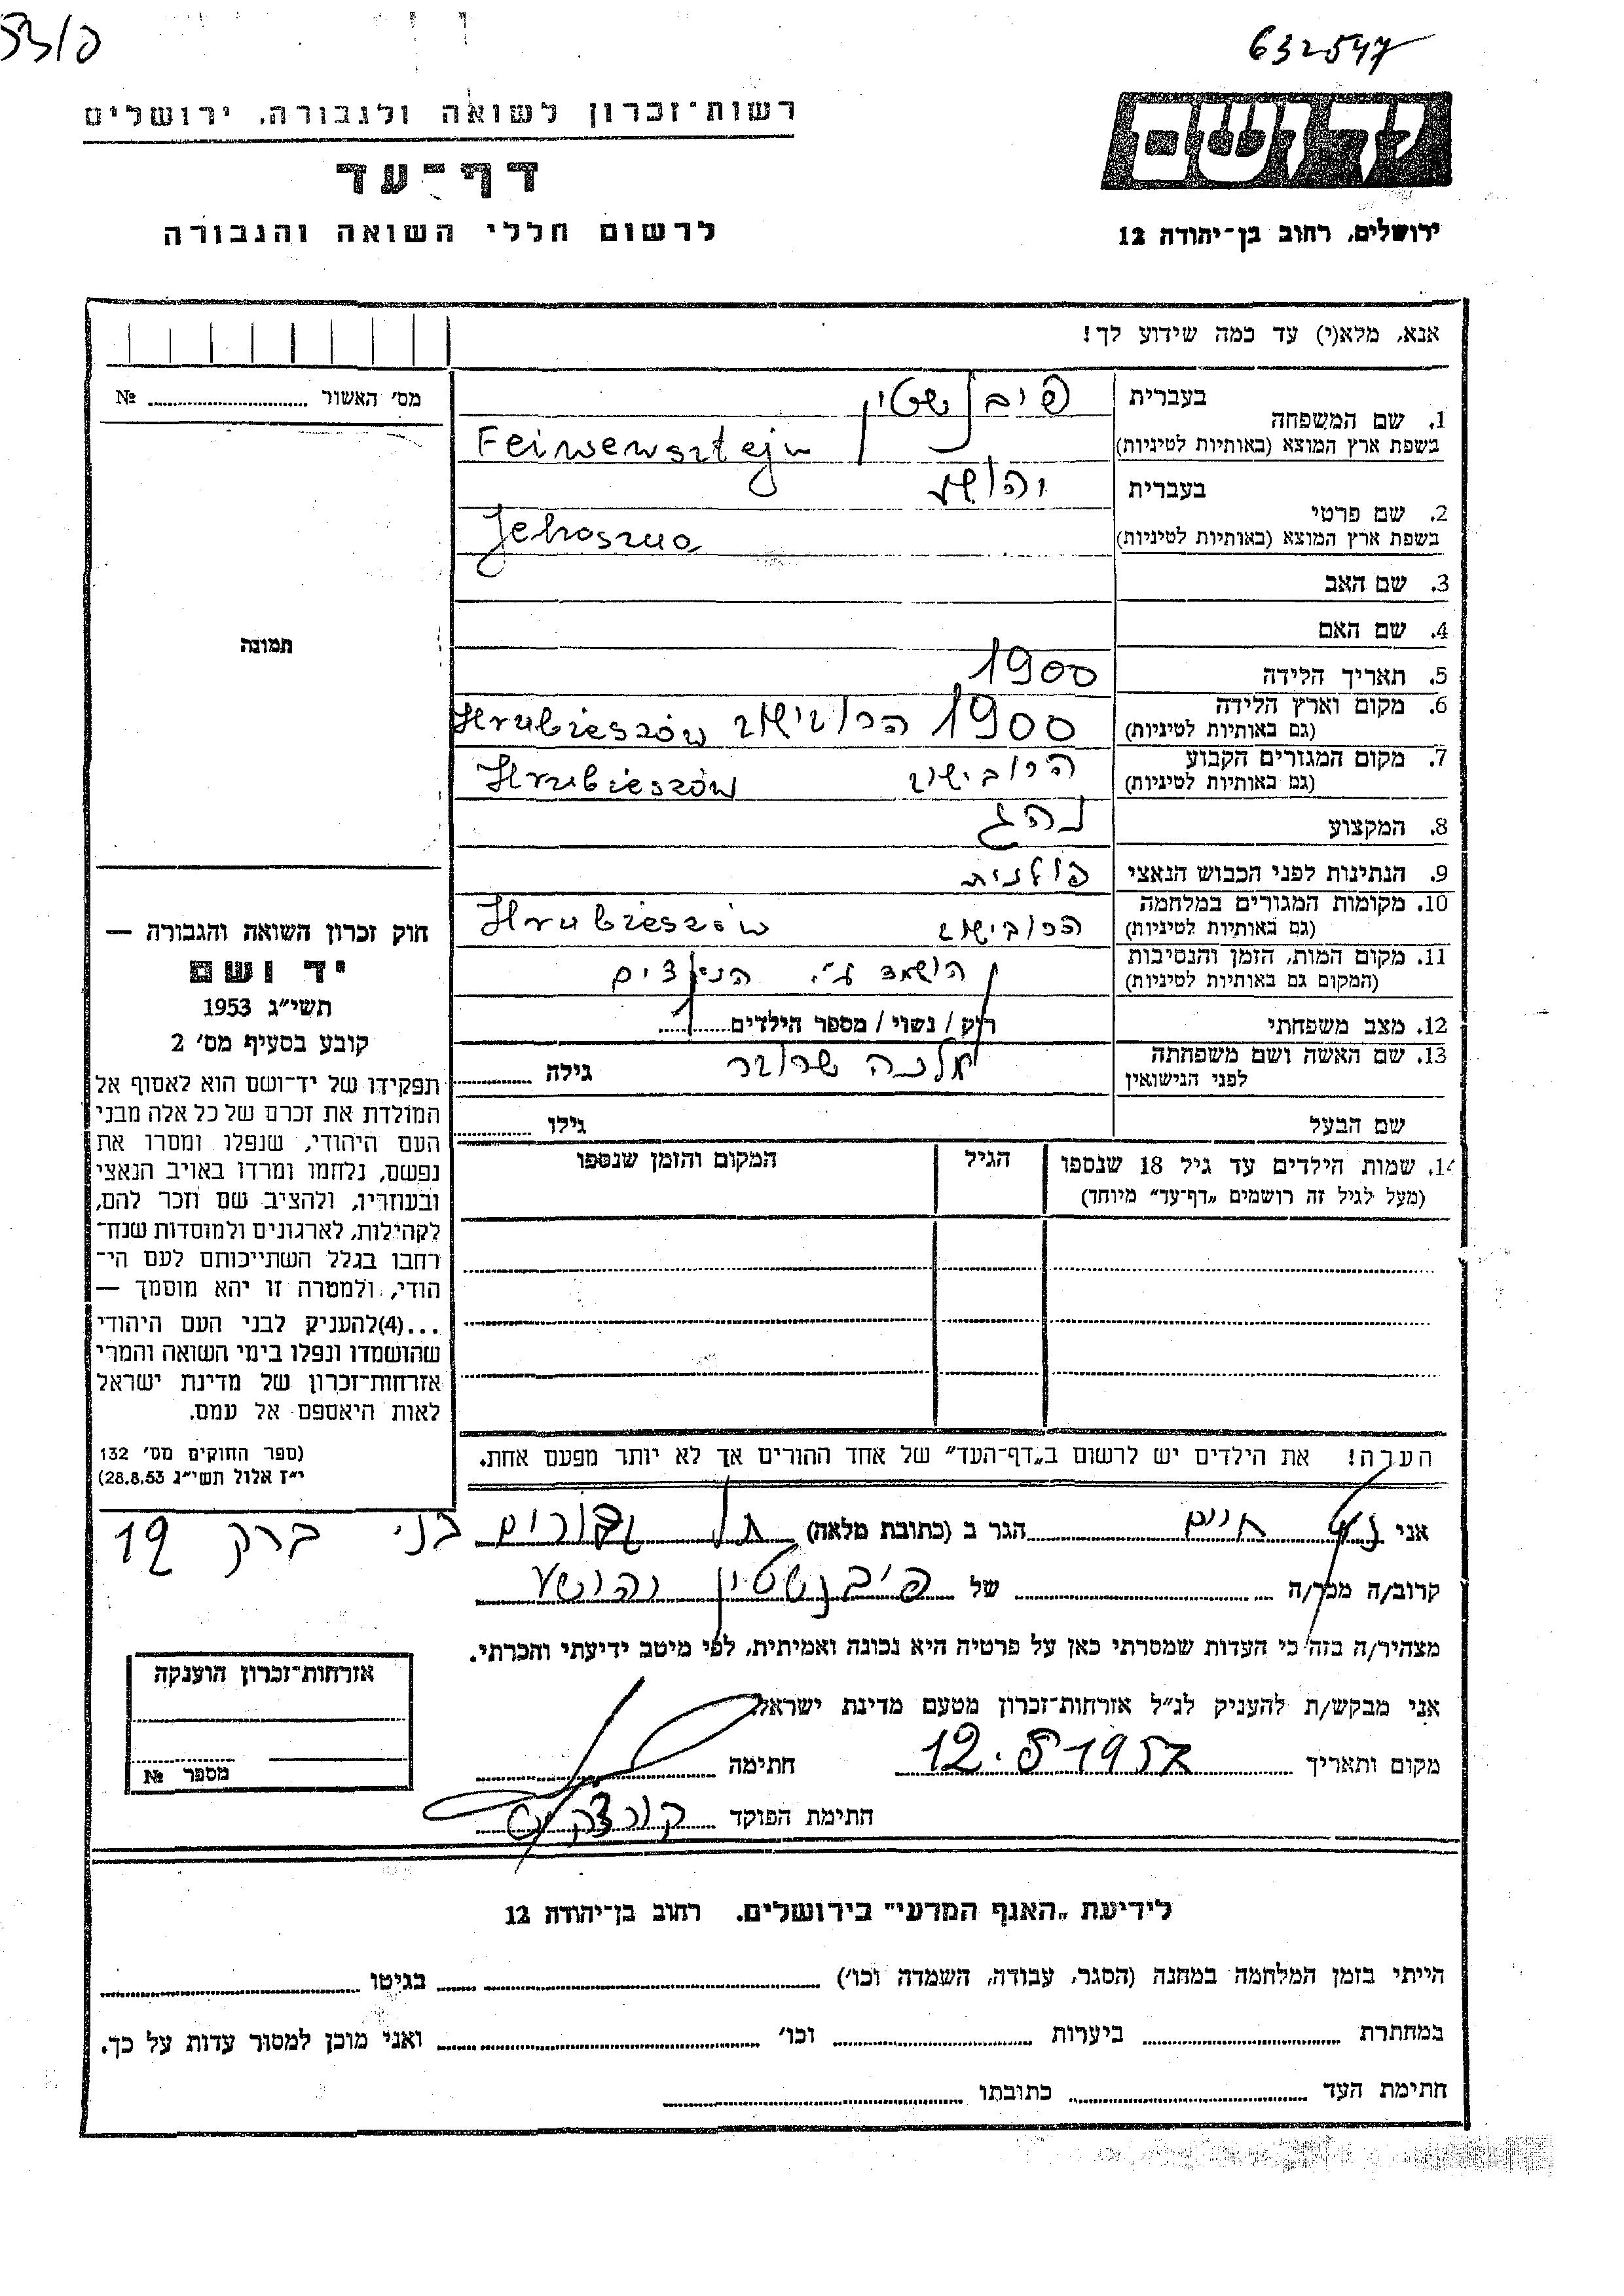 פ/53
632547
יד ושם
ירושלים, רחוב בן־יהודה 12
רשות־זכרון לשואה ולגבורה, ירושלים
דף־עד
לרשום חללי השואה והגבורה
אנא, מלא(י) עד כמה שידוע לך!
מס׳ האשור № 
תמונה
1. שם המשפחה
בעברית
פיבנשטין
בשפת ארץ המוצא (באותיות לטיניות)
Feiwensztejn
2. שם פרטי
בעברית
יהושע
בשפת ארץ המוצא (באותיות לטיניות)
Jehoszua
3. שם האב
4. שם האם
5. תאריך הלידה 1900
6. מקום וארץ הלידה 1900 הרובישוב Hrubieszów
(גם באותיות לטיניות)
7. מקום המגורים הקבוע הרובישוב Hrubieszów
(גם באותיות לטיניות)
8. המקצוע נהג
9. הנתינות לפני הכבוש הנאצי פולנית
10. מקומות המגורים במלחמה הרובישוב Hrubieszów
(גם באותיות לטיניות)
11. מקום המות, הזמן והנסיבות הושמד ע״י הנאצים
(המקום גם באותיות לטיניות)
12. מצב משפחתי רוק / נשוי / מספר הילדים
13. שם האשה ושם משפחתה
לפני הנישואין
מלכה גילה
שם הבעל גילו
14. שמות הילדים עד גיל 18 שנספו הגיל המקום והזמן שנספו
(מעל לגיל זה רושמים „דף־עד״ מיוחד)
הערה! את הילדים יש לרשום ב„דף־העד״ של אחד ההורים אך לא יותר מפעם אחת.
חוק זכרון השואה והגבורה —
יד ושם
תשי״ג 1953
קובע בסעיף מס׳ 2
תפקידו של יד־ושם הוא לאסוף אל
המולדת את זכרם של כל אלה מבני
העם היהודי, שנפלו ומסרו את
נפשם, נלחמו ומרדו באויב הנאצי
ובעוזריו, ולהציב שם וזכר להם,
לקהילות, לארגונים ולמוסדות שנח־
רחבו בגלל השתייכותם לעם הי־
הודי, ולמטרה זו יהא מוסמך —
...(4)להעניק לבני העם היהודי
שהושמדו ונפלו בימי השואה והמרי
אזרחות־זכרון של מדינת ישראל
לאות היאספם אל עמם.
(ספר החוקים מס׳ 132
י״ז אלול תשי״ג 28.8.53)
אני חיים הגר ב (כתובת מלאה) תל גבורים בני ברק 19
קרוב/ה מכר/ה של פיבנשטין יהושע
מצהיר/ה בזה כי העדות שמסרתי כאן על פרטיה היא נכונה ואמיתית, לפי מיטב ידיעתי והכרתי.
אני מבקש/ת להעניק לנ״ל אזרחות־זכרון מטעם מדינת ישראל.
מקום ותאריך 12.5 1957 חתימה
חתימת הפוקד
אזרחות־זכרון הוענקה
מספר №
לידיעת „האגף המדעי״ בירושלים. רחוב בן־יהודה 12
הייתי בזמן המלחמה במחנה (הסגר, עבודה, השמדה וכו׳) בגיטו
במחתרת ביערות וכו׳ ואני מוכן למסור עדות על כך.
חתימת העד כתובתו